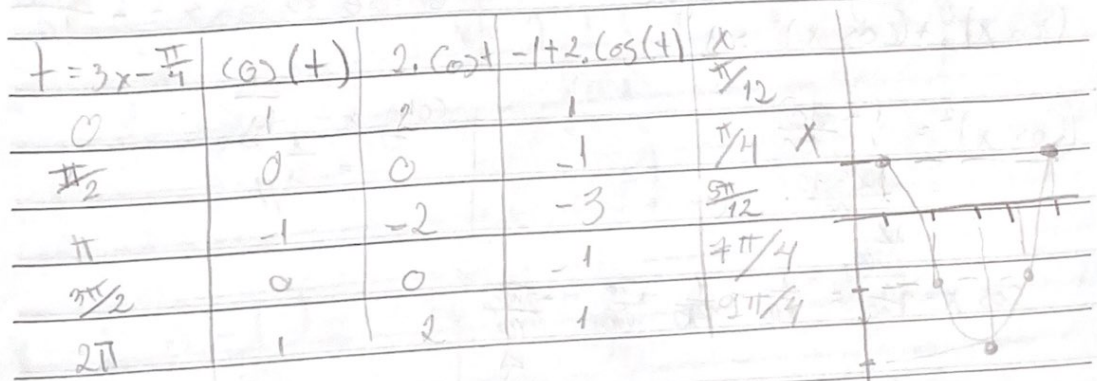 t = 3x - π/4 cos(t) 2.cost -1+2.cos(t) x
0 1 2 1 π/12
π/2 0 0 -1 π/4 X
π -1 -2 -3 5π/12
3π/2 0 0 -1 7π/4
2π 1 2 1 9π/4